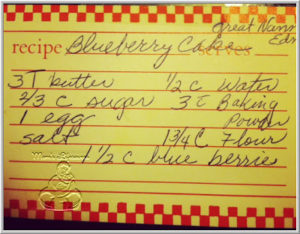 Great Nann
recipe Blueberry Cake serves
3T butter 1/2 c water
2/3 c sugar 3 t Baking
1 egg Powder
salt 1 3/4 C Flour
1 1/2 c blue berries